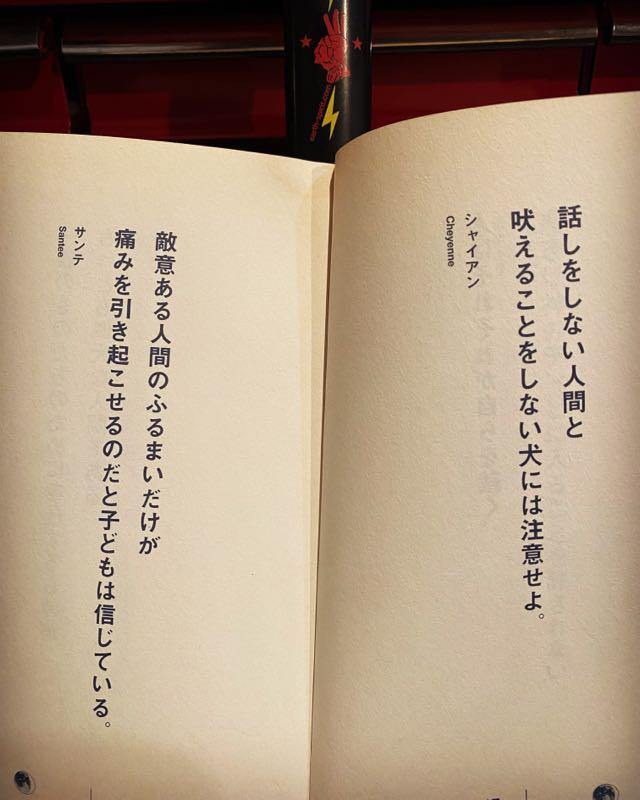 話しをしない人間と
吠えることをしない犬には注意せよ。
シャイアン
Cheyenne
敵意ある人間のふるまいだけが
痛みを引き起こせるのだと子どもは信じている。
サンテ
Santee